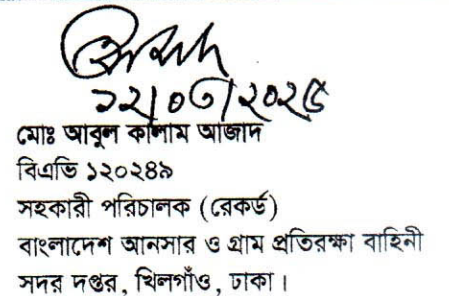 ১২/০৩/২০২৫
মোঃ আবুল কালাম আজাদ
বিএভি ১২০২৪৯
সহকারী পরিচালক (রেকর্ড)
বাংলাদেশ আনসার ও গ্রাম প্রতিরক্ষা বাহিনী
সদর দপ্তর, খিলগাঁও, ঢাকা।